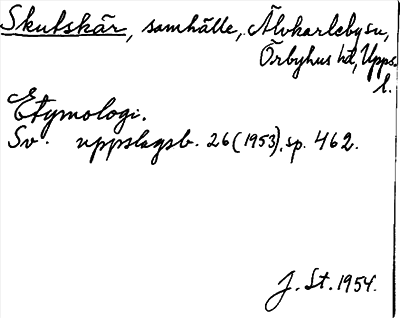 Skutskär, samhälle, Älvkarleby sn,
Örbyhus hd, Upps.
l.
Etymologi.
Sv. uppslagsb. 26 (1953), sp. 462.
J. St. 1954.